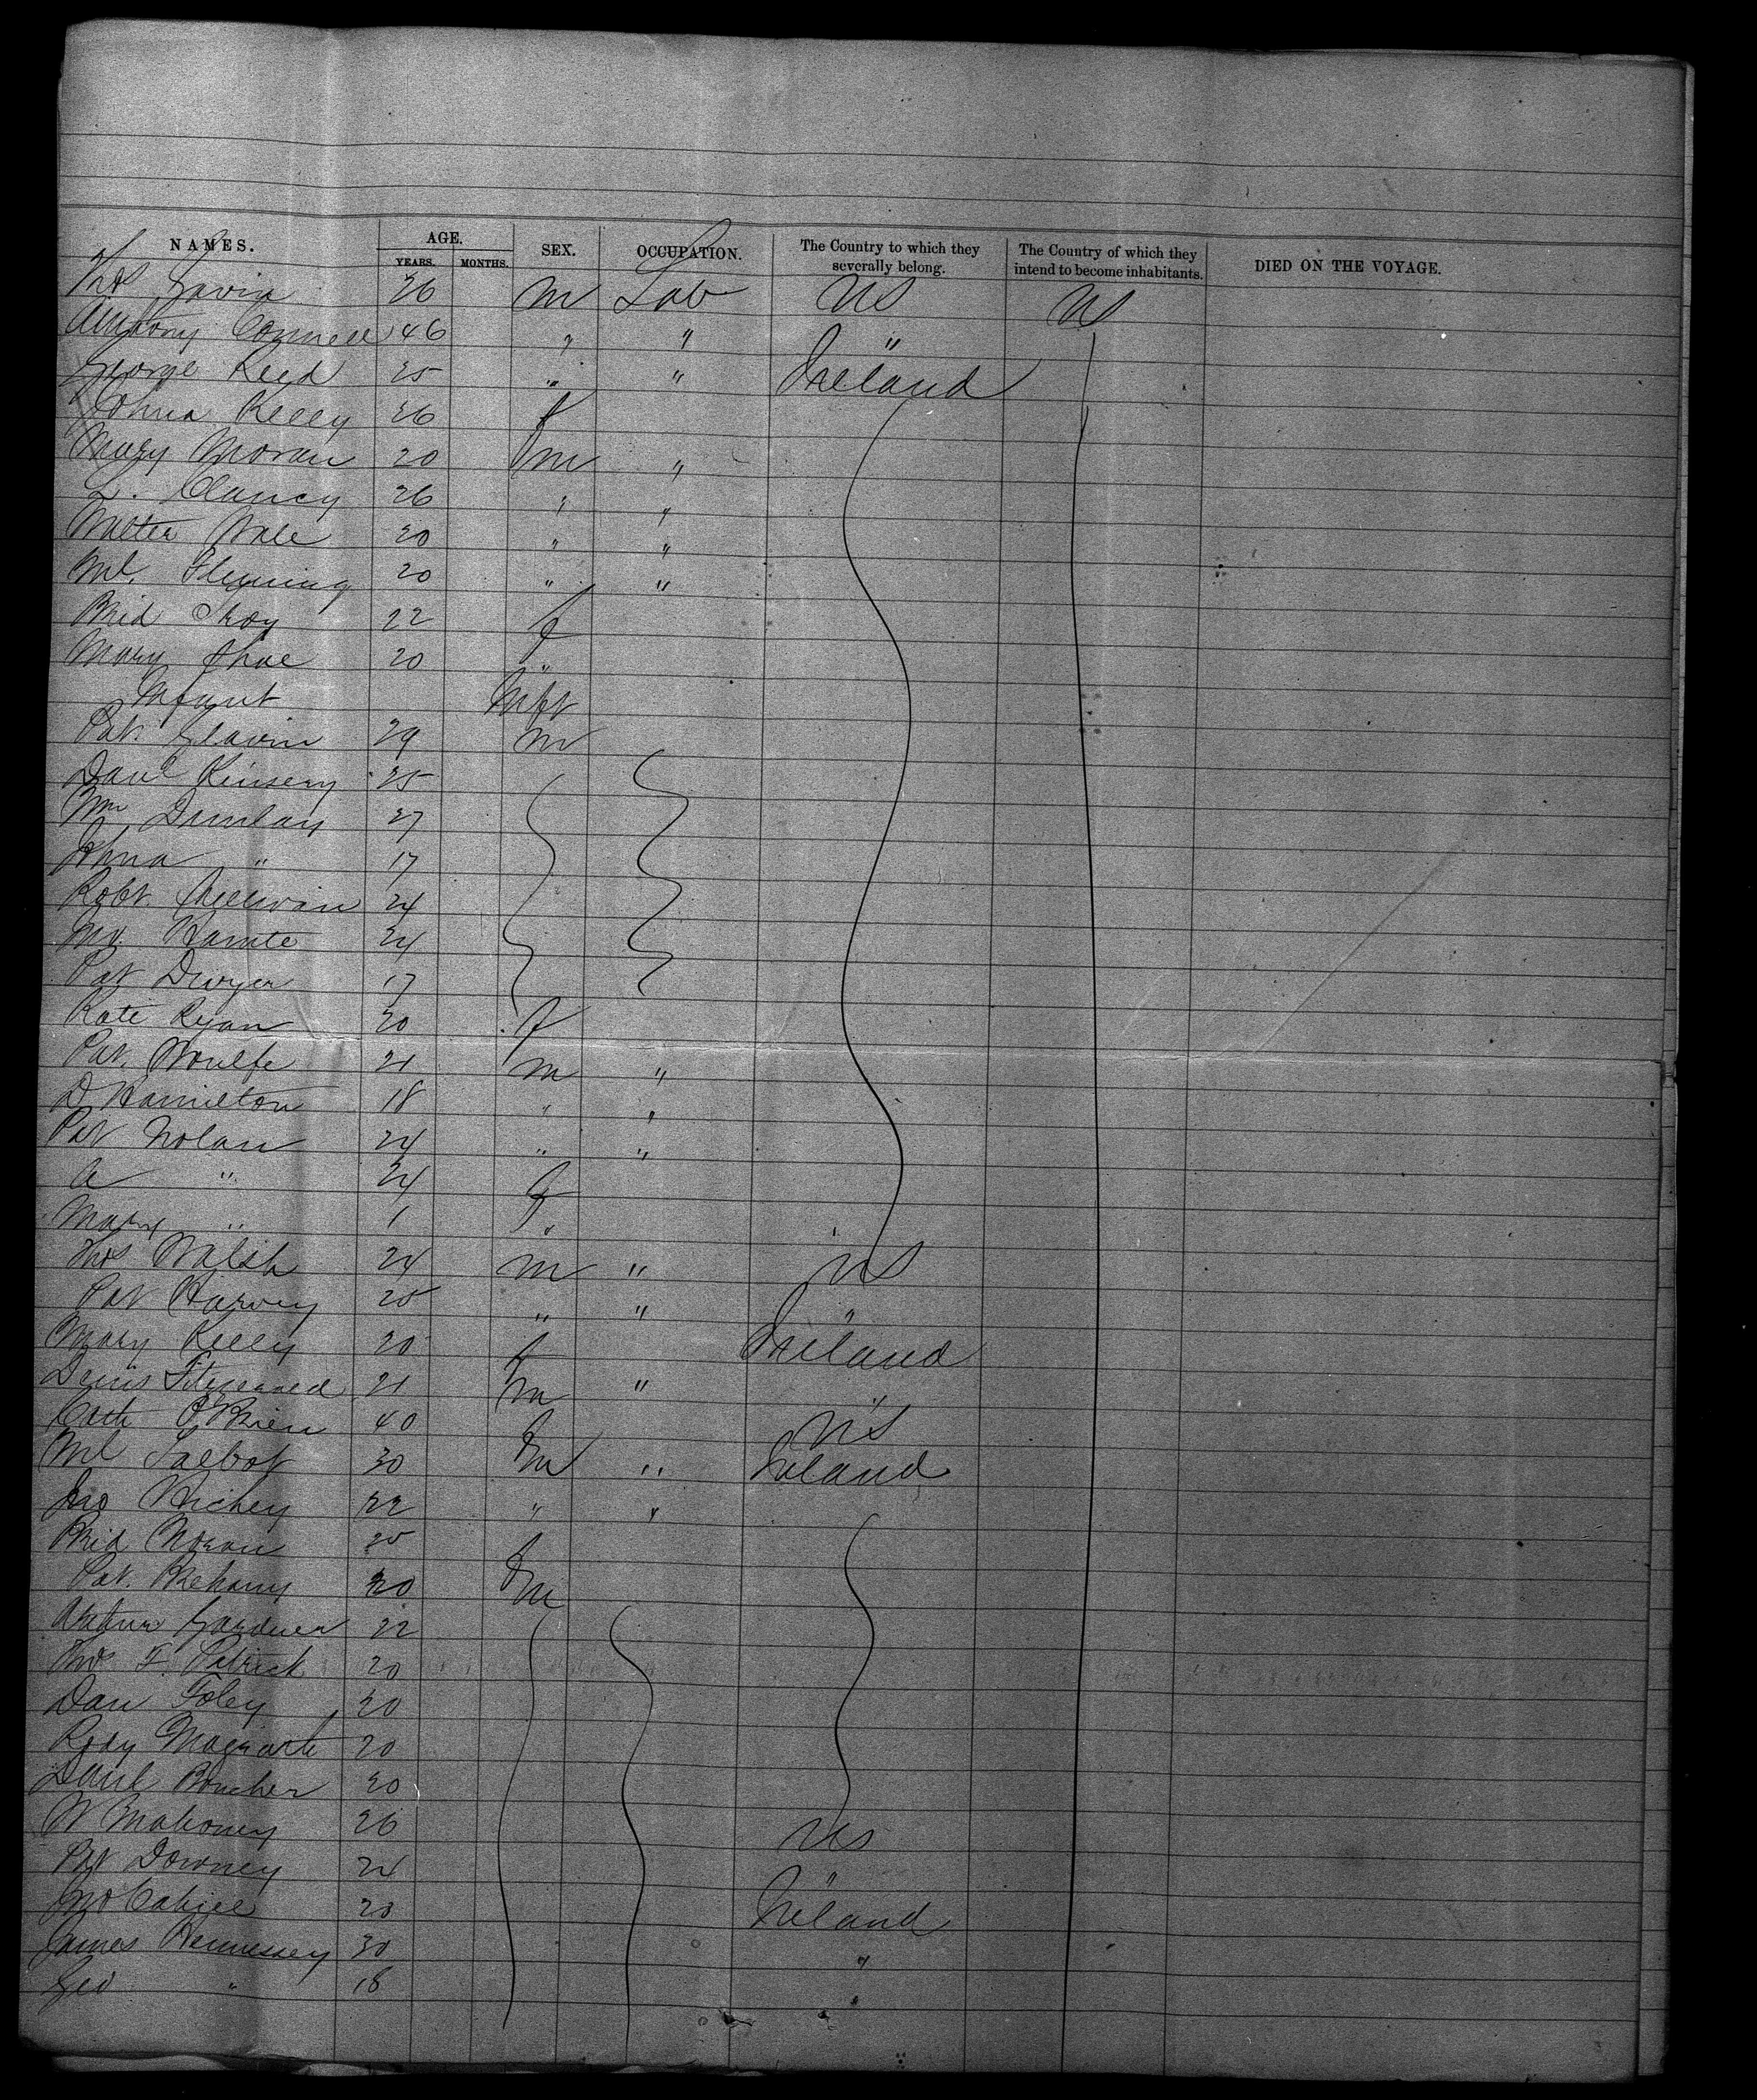 NAMES. AGE. YEARS. MONTHS. SEX. OCCUPATION. The Country to which they severally belong. The Country of which they intend to become inhabitants. DIED ON THE VOYAGE.
Thos Gavin 36 m Lab US US
Anthony Connell 46 " " "
George Reed 25 " " Ireland
Johna Kelly 26 f
Mary Moran 20 m "
L. Clancy 26 " "
Walter Wall 20 " "
Ml. Fleming 20 " "
Brid Troy 22 f
Mary Shae 20 "
Infant Inft
Pat. Glavin 29 m
Danl Kinsery 25
Wm Dunlay 27
Johna " 17
Robt. Sullivan 24
24
Pat Dwyer 17
Kate Ryan 20 f
Pat. Woulfe 21 m "
D Hamilton 18 " "
Pat Nolan 24 " "
A " 24 f
Mary " 1 f
Thos Walsh 24 m " US
Pat Harvey 25 " " "
Mary Kelly 20 f Ireland
Denis Fitzgerald 21 m " "
Cath O'Brien 40 f US
Ml Talbot 30 m " Ireland
Jno Hickey 22 " "
Brid 25 f
Pat. Brehany 20 m
Arthur Gardner 22
Thos F. Patrick 20
Dan Foley 20
Rody 20
Danl Boucher 20
W Mahoney 26 US
Pat Downey 24
Jno Cahill 20 Ireland
James Hennessey 30 "
Geo " 18 "